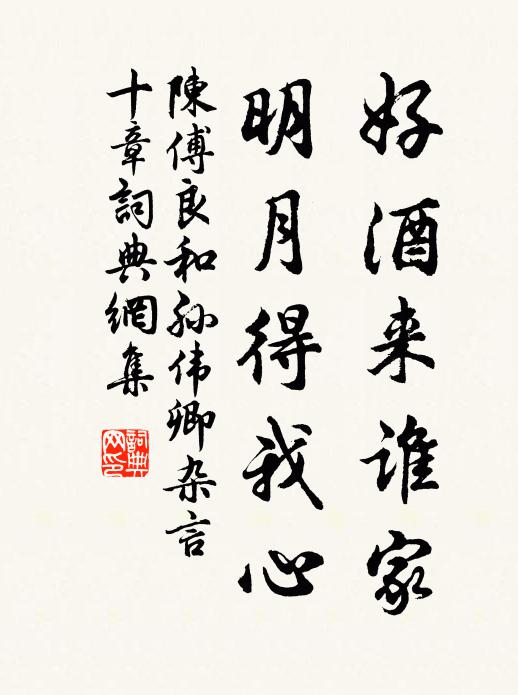 好酒来谁家
明月得我心
陳傅良和孙伟卿杂言
十章詞典網集
詞典網印